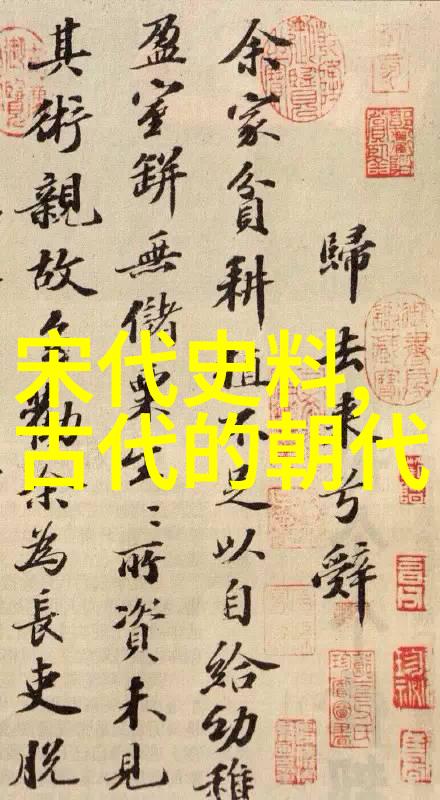 歸去来兮辭
余家貧耕植不足以自給幼稚
盈室缾無儲粟生〻所資未見
其術親故多勸余為長吏脱
宋代史料,
古代的朝代